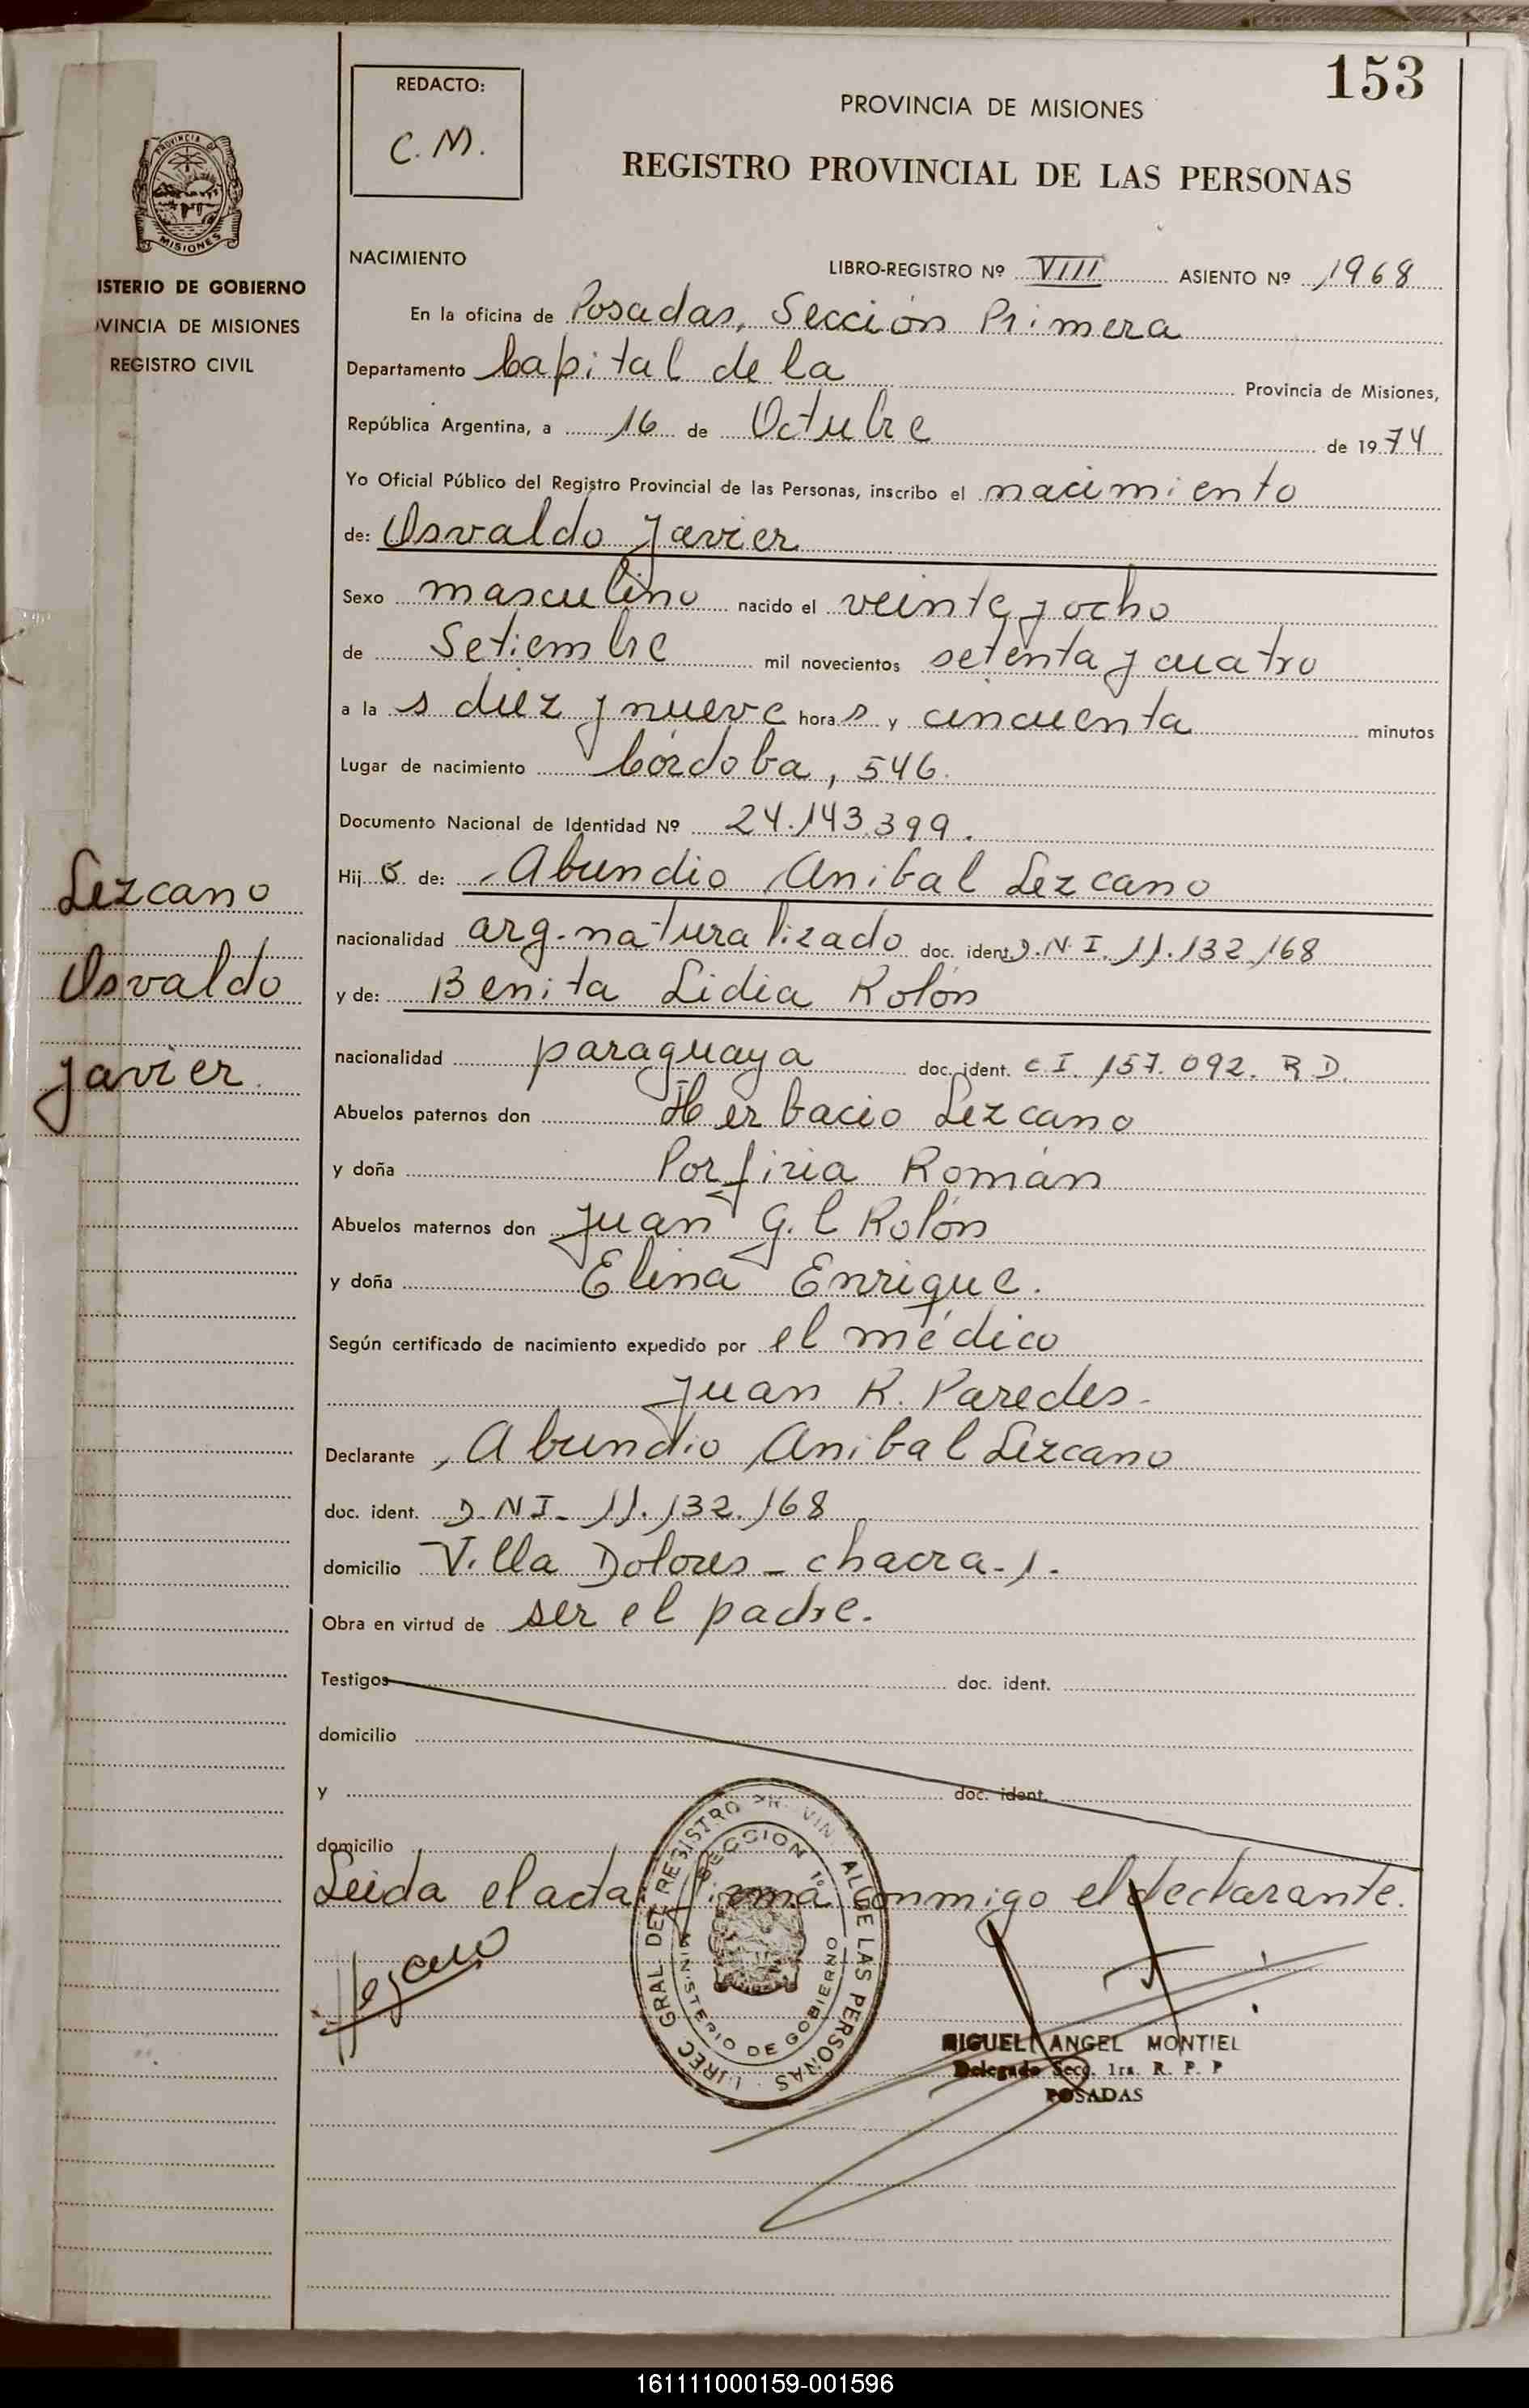 153
REDACTO:
C. M.
PROVINCIA DE MISIONES
REGISTRO PROVINCIAL DE LAS PERSONAS
PROVINCIA DE
MISIONES
ISTERIO DE GOBIERNO
VINCIA DE MISIONES
REGISTRO CIVIL
NACIMIENTO LIBRO-REGISTRO Nº VIII ASIENTO Nº 1968
En la oficina de Posadas, Sección Primera
Departamento Capital de la Provincia de Misiones,
República Argentina, a 16 de Octubre de 1974
Yo Oficial Público del Registro Provincial de las Personas, inscribo el nacimiento
de: Osvaldo Javier
Sexo masculino nacido el veinte y ocho
de Setiembre mil novecientos setenta y cuatro
a la s diez y nueve horas y cincuenta minutos
Lugar de nacimiento Córdoba, 546.
Documento Nacional de Identidad Nº 24.143.399.
Hijo de: Abundio Anibal Lezcano
nacionalidad arg. naturalizado doc. ident. D.N.I. 11.132.168
y de: Benita Lidia Rolón
nacionalidad paraguaya doc. ident. C.I. 157.092. R.D.
Abuelos paternos don Herbacio Lezcano
y doña Porfiria Román
Abuelos maternos don Juan G. l Rolón
y doña Elina Enrique.
Según certificado de nacimiento expedido por el médico
Juan R. Paredes.
Declarante Abundio Anibal Lezcano
doc. ident. D.N.I. 11.132.168
domicilio Villa Dolores - chacra - 1.
Obra en virtud de ser el padre.
Testigos doc. ident.
domicilio
y doc. ident.
domicilio
Leida el acta, firma conmigo el declarante.
Lezcano
Osvaldo
Javier
DIREC GRAL DEL REGISTRO PROVINCIAL DE LAS PERSONAS
SECCION 1º
MINISTERIO DE GOBIERNO
MIGUEL ANGEL MONTIEL
Delegado Secc. 1ra. R. P. P
POSADAS
161111000159-001596